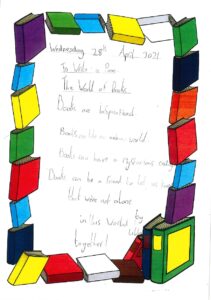 Wednesday 28th April 2021
To Write a Poem
The World of Books
Books are Inspirational
Books are like an unknown world.
Books can have a mysterious
Books can be a friend to let us know
that were not alone
in this World by
together!